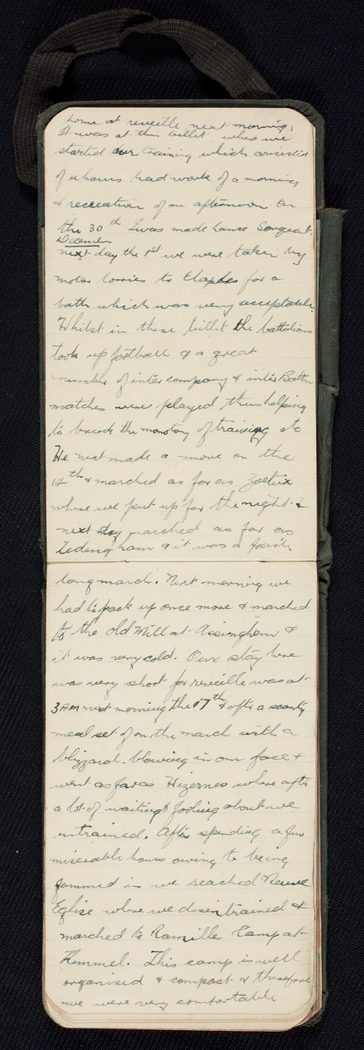 home at reveille next morning.
It was at this billet where we
started our training which consisted
of 4 hours hard work of a morning
& recreation of an afternoon. On
the 30th I was made Lance Sergeant.
December
next day the 1st we were taken by
motor lorries to Etaples for a
bath which was very acceptable.
Whilst in these billet the battalions
took up football & a great
number of inter company & inter Battn
matches were played, thus helping
to break the monotony of training etc
We next made a move on the
& marched as far as
where we put up for the night &
next day marched as far as
Ledingham & it was a fairly
long march. Next morning we
had to pack up once more & marched
to the old Mill at Assinghem &
it was very cold. Our stay here
was very short for reveille was at
3 AM next morning the 17th & after a scanty
meal set off on the march with a
blizard blowing in our face &
went as far as Wizernes where after
a lot of waiting & fooling about we
entrained. After spending a few
miserable hours owing to being
jammed in we reached Neuve
Eglise where we disentrained &
marched to Ramillie Camp at
Kemmel. This camp is well
organised & compact & therefore
we were very comfortable